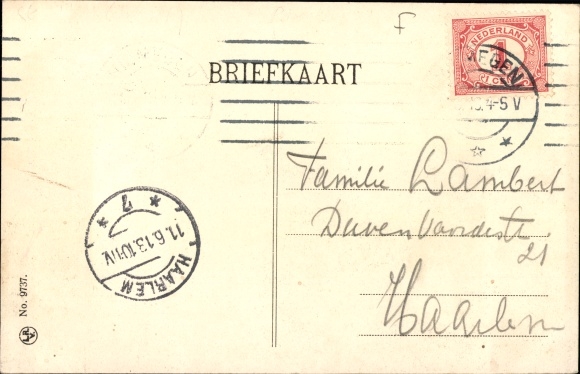 F
NEDERLAND
1
1 C
EGEN
4-5 V
BRIEFKAART
Familie Lambert
21
Haarlem
7
11.6.13.
HAARLEM
No. 9737.